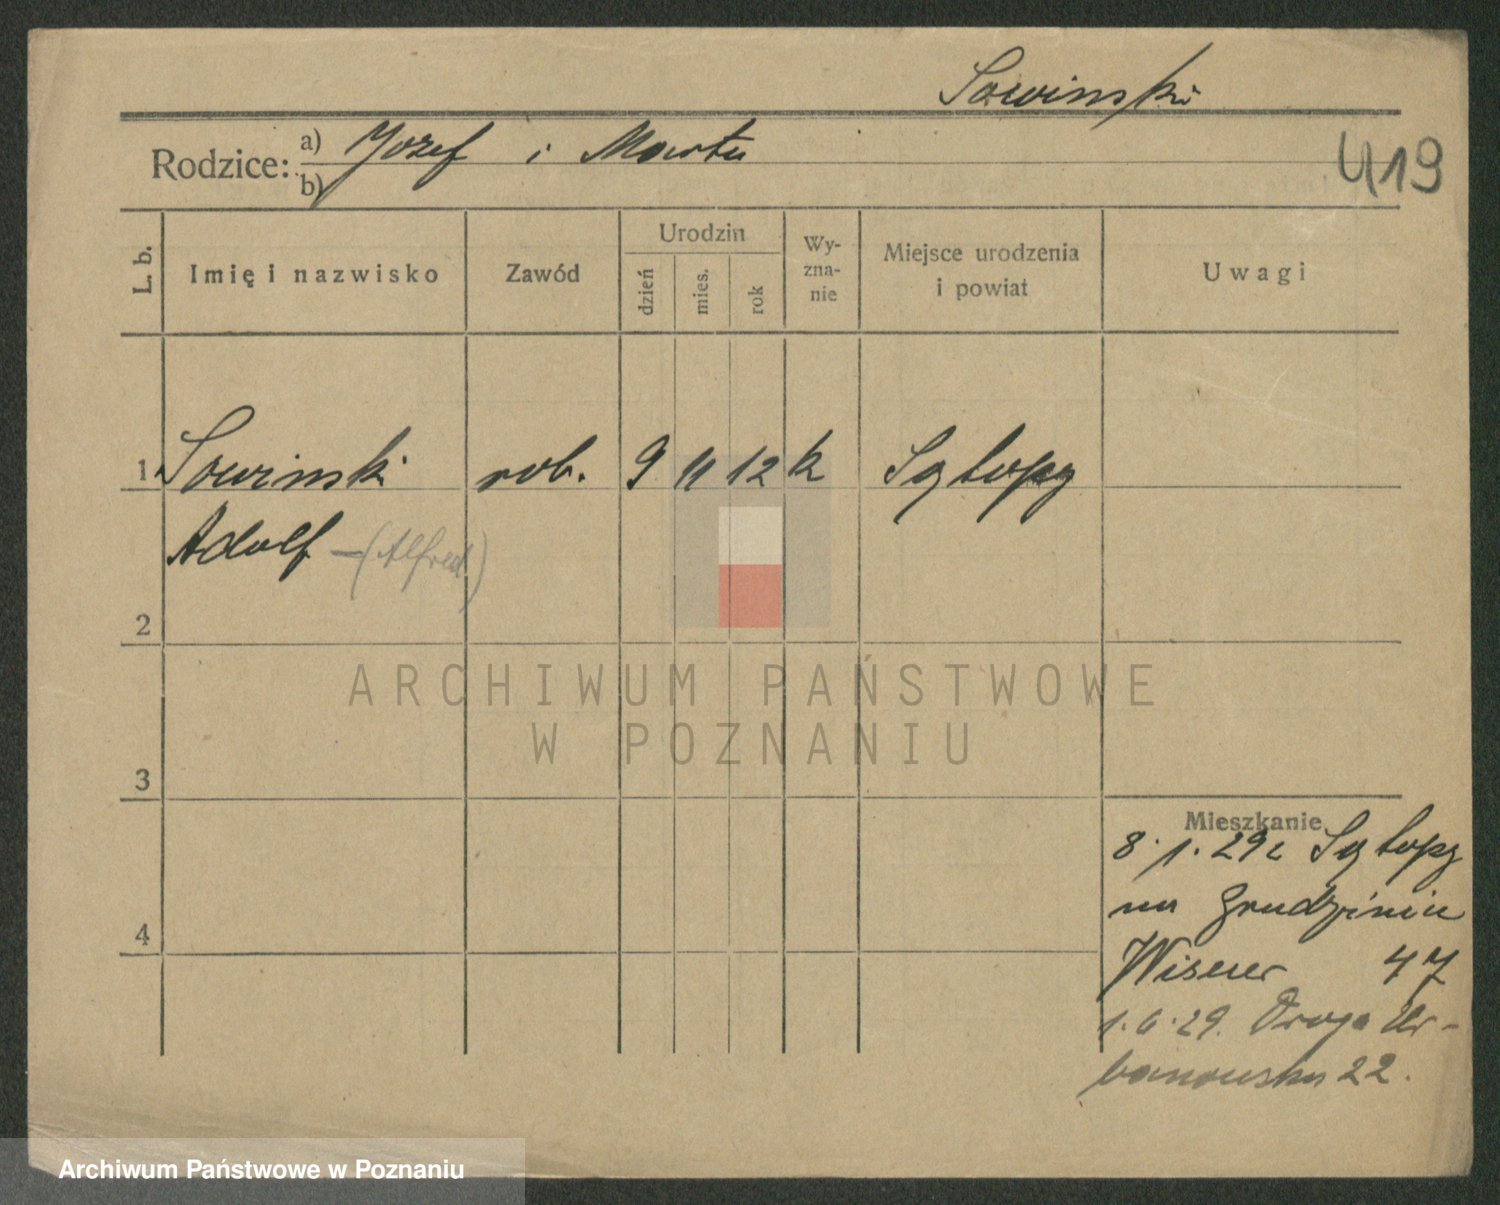 Sowinski
Rodzice: a) Jozef i Marta
b)
419
L. b. Imię i nazwisko Zawód Urodzin dzień mies. rok Wy-zna-nie Miejsce urodzenia i powiat Uwagi
1 Sowinski rob. 9 11 12 k Sątopy
Adolf - (Alfred)
2
ARCHIWUM PAŃSTWOWE
W POZNANIU
3
Mieszkanie
8.1.29 z Sątopy
na Grudzieniec
4
47
1.6.29. Droga Ur-
banowska 22.
Archiwum Państwowe w Poznaniu